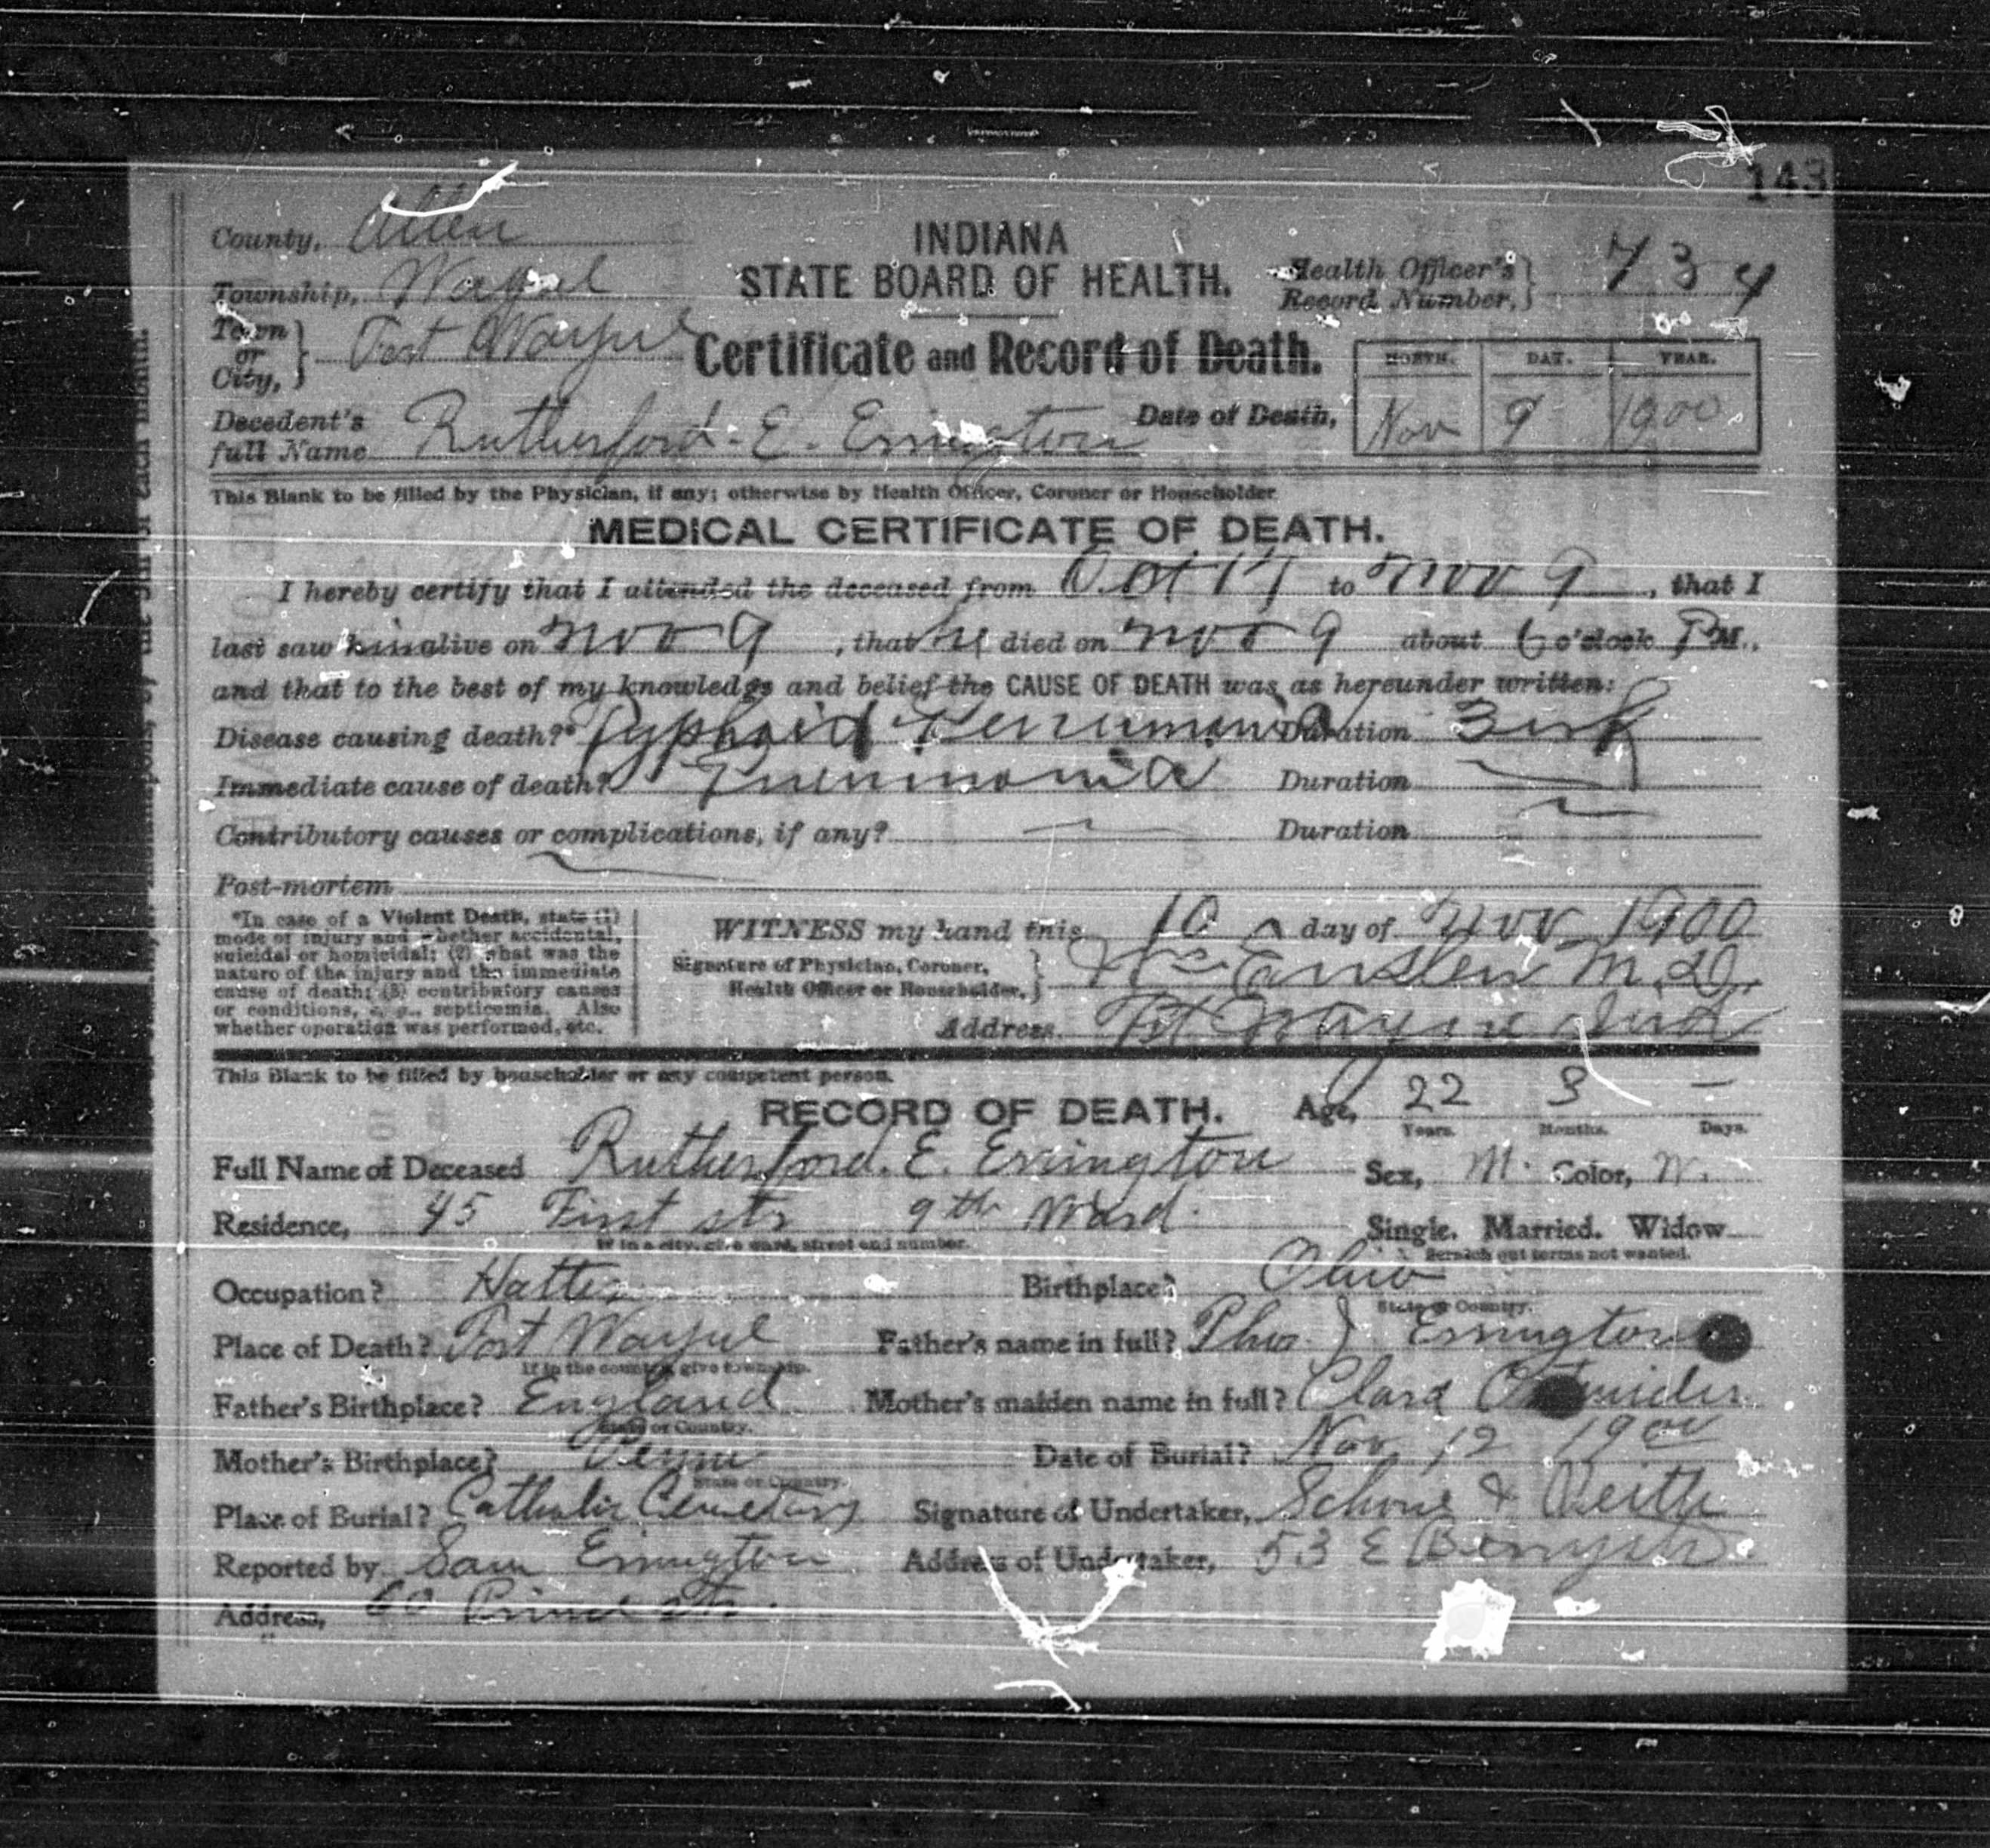 143
County, Allen
INDIANA
STATE BOARD OF HEALTH.
Health Officer's Record Number, 734
Township, Wayne
Town or City, Fort Wayne
Certificate and Record of Death.
MONTH. DAY. YEAR.
Date of Death, Nov 9 1900
Decedent's full Name Rutherford E. Errington
This Blank to be filled by the Physician, if any; otherwise by Health Officer, Coroner or Householder.
MEDICAL CERTIFICATE OF DEATH.
I hereby certify that I attended the deceased from Oct 14 to Nov 9, that I
last saw him alive on Nov 9, that he died on Nov 9 about 6 o'clock P M.,
and that to the best of my knowledge and belief the CAUSE OF DEATH was as hereunder written:
Disease causing death?* Typhoid Pneumonia Duration 3
Immediate cause of death? Pneumonia Duration
Contributory causes or complications, if any? Duration
Post-mortem
*In case of a Violent Death, state (1)
mode of injury and whether accidental,
suicidal or homicidal; (2) what was the
nature of the injury and the immediate
cause of death; (3) contributory causes
or conditions, e. g., septicemia. Also
whether operation was performed, etc.
WITNESS my hand this 10 day of Nov 1900
Signature of Physician, Coroner, Health Officer or Householder, M.D.
Address. Ft Wayne Ind
This Blank to be filled by householder or any competent person.
RECORD OF DEATH. Age, 22 3 —
Years. Months. Days.
Full Name of Deceased Rutherford. E. Errington Sex, M. Color, W.
Residence, 45 First str 9th Ward. Single. Married. Widow
If in a city, give ward, street and number. Scratch out terms not wanted.
Occupation? Hatter Birthplace? Ohio
State or Country.
Place of Death? Fort Wayne Father's name in full? Errington
If in the country, give township.
Father's Birthplace? England Mother's maiden name in full? Clara
State or Country.
Mother's Birthplace? Penn Date of Burial? Nov 12 1900
State or Country.
Place of Burial? Catholic Cemetery Signature of Undertaker, Schone & Veith
Reported by Sam Errington Address of Undertaker, 53 E
Address, 60 str.